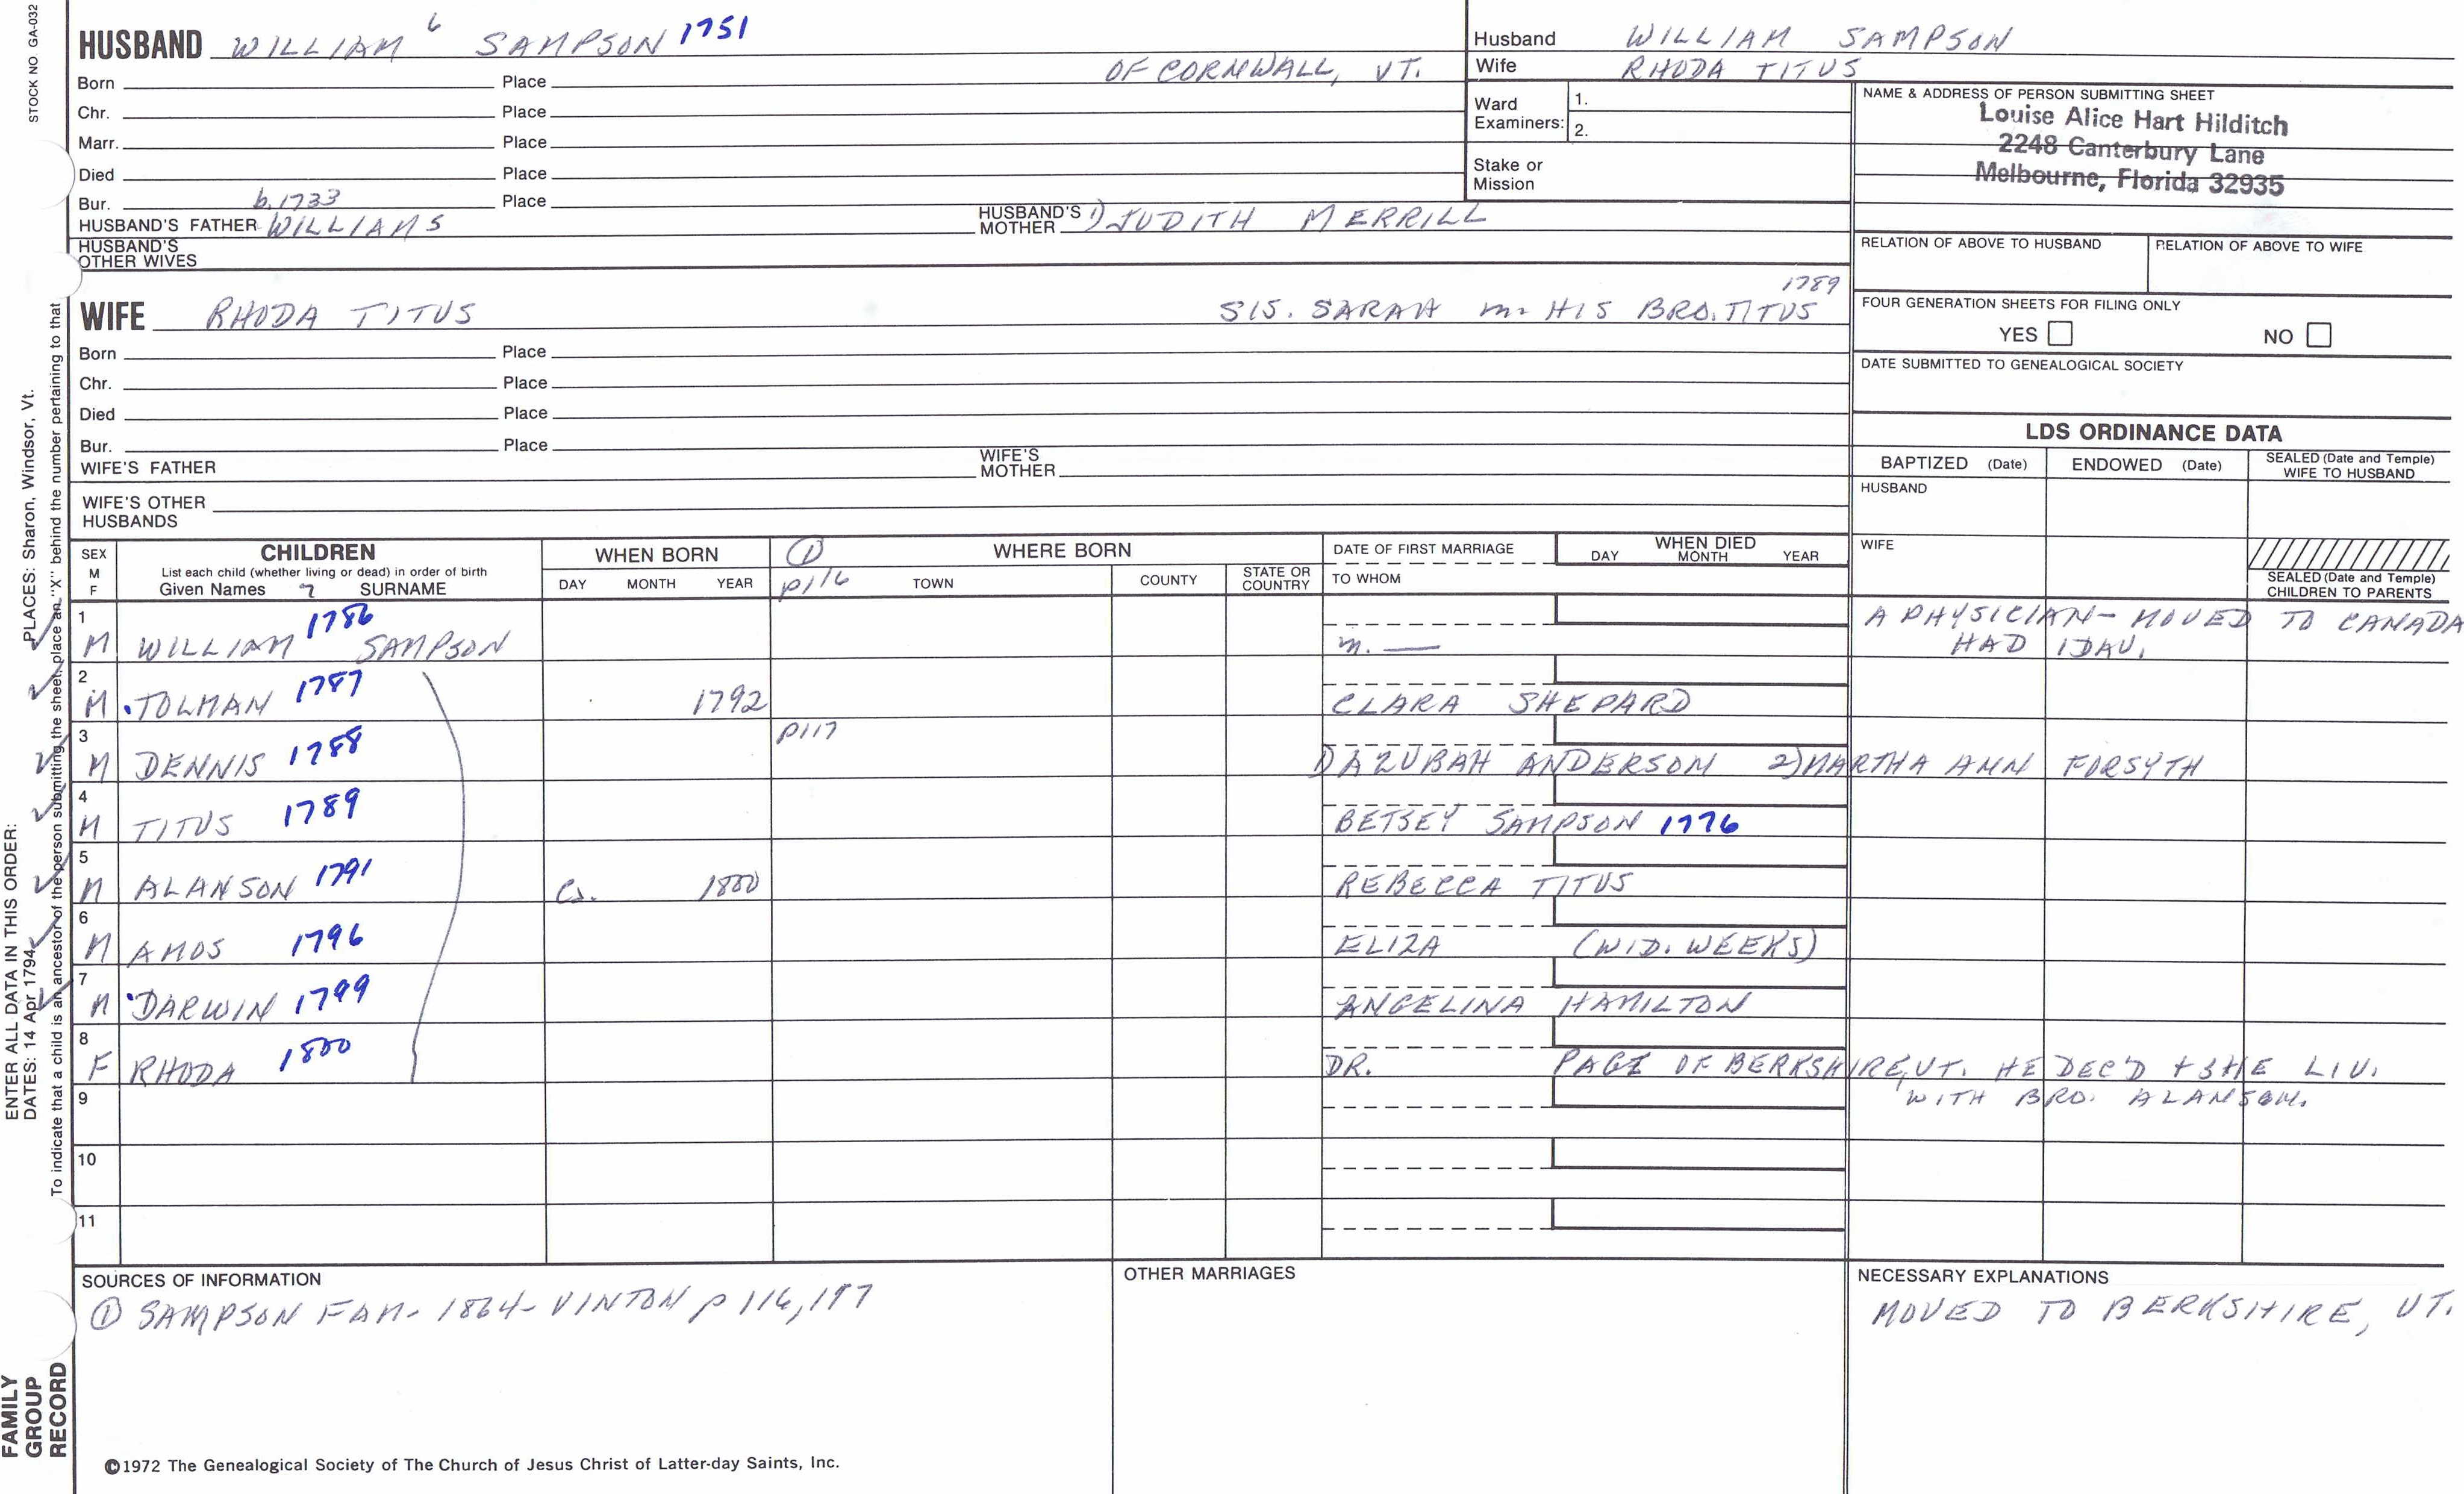 STOCK NO. GA-032
HUSBAND WILLIAM 6 SAMPSON 1751
OF CORNWALL, VT.
Born Place
Chr. Place
Marr. Place
Died Place
Bur. b. 1733 Place
HUSBAND'S FATHER WILLIAM 5 HUSBAND'S MOTHER 1) JUDITH MERRILL
HUSBAND'S OTHER WIVES
Husband WILLIAM SAMPSON
Wife RHODA TITUS
Ward Examiners: 1.
2.
Stake or Mission
NAME & ADDRESS OF PERSON SUBMITTING SHEET
Louise Alice Hart Hilditch
2248 Canterbury Lane
Melbourne, Florida 32935
RELATION OF ABOVE TO HUSBAND RELATION OF ABOVE TO WIFE
1789
WIFE RHODA TITUS SIS. SARAH m. HIS BRO. TITUS
Born Place
Chr. Place
Died Place
Bur. Place
WIFE'S FATHER WIFE'S MOTHER
WIFE'S OTHER HUSBANDS
FOUR GENERATION SHEETS FOR FILING ONLY
YES NO
DATE SUBMITTED TO GENEALOGICAL SOCIETY
LDS ORDINANCE DATA
BAPTIZED (Date) ENDOWED (Date) SEALED (Date and Temple) WIFE TO HUSBAND
HUSBAND
WIFE
SEALED (Date and Temple) CHILDREN TO PARENTS
SEX M F
CHILDREN
List each child (whether living or dead) in order of birth
Given Names 7 SURNAME
WHEN BORN
DAY MONTH YEAR
① WHERE BORN
p116 TOWN COUNTY STATE OR COUNTRY
DATE OF FIRST MARRIAGE
TO WHOM
WHEN DIED
DAY MONTH YEAR
1 M WILLIAM 1786 SAMPSON m. — A PHYSICIAN - MOVED TO CANADA
HAD 1 DAU.
2 M TOLMAN 1787 1792 CLARA SHEPARD
3 M DENNIS 1788 p117 1) AZUBAH ANDERSON 2) MARTHA ANN FORSYTH
4 M TITUS 1789 BETSEY SAMPSON 1776
5 M ALANSON 1791 Ca. 1800 REBECCA TITUS
6 M AMOS 1796 ELIZA (WID. WEEKS)
7 M DARWIN 1799 ANGELINA HAMILTON
8 F RHODA 1800 DR. PAGE OF BERKSHIRE, VT. HE DEC'D + SHE LIV.
WITH BRO. ALANSON.
9
10
11
SOURCES OF INFORMATION
① SAMPSON FAM- 1864- VINTON p 116, 117
OTHER MARRIAGES
NECESSARY EXPLANATIONS
MOVED TO BERKSHIRE, VT.
ENTER ALL DATA IN THIS ORDER:
DATES: 14 Apr 1794
PLACES: Sharon, Windsor, Vt.
To indicate that a child is an ancestor of the person submitting the sheet, place an "X" behind the number pertaining to that
FAMILY GROUP RECORD
©1972 The Genealogical Society of The Church of Jesus Christ of Latter-day Saints, Inc.